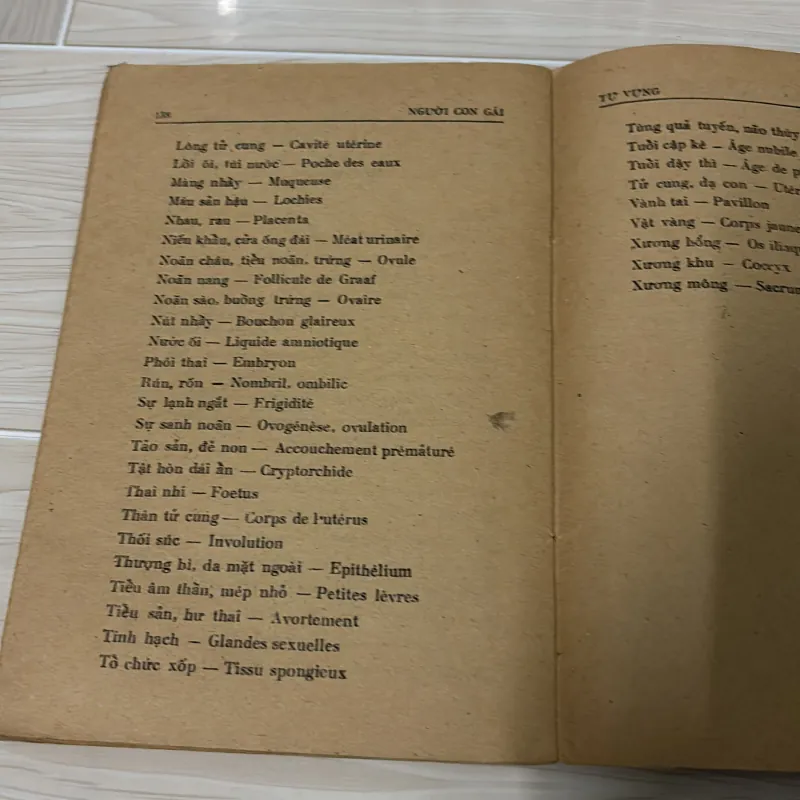 138 NGƯỜI CON GÁI
Lòng tử cung — Cavité utérine
Lồi ối, túi nước — Poche des eaux
Màng nhầy — Muqueuse
Máu sản hậu — Lochies
Nhau, rau — Placenta
Niếu khẩu, cửa ống đái — Méat urinaire
Noãn châu, tiểu noãn, trứng — Ovule
Noãn nang — Follicule de Graaf
Noãn sào, buồng trứng — Ovaire
Nút nhầy — Bouchon glaireux
Nước ối — Liquide amniotique
Phôi thai — Embryon
Rún, rốn — Nombril, ombilic
Sự lạnh ngắt — Frigidité
Sự sanh noãn — Ovogénèse, ovulation
Tảo sản, đẻ non — Accouchement prématuré
Tật hòn dái ẩn — Cryptorchide
Thai nhi — Foetus
Thân tử cung — Corps de l'utérus
Thối súc — Involution
Thượng bì, da mặt ngoài — Epithélium
Tiểu âm thần, mép nhỏ — Petites lèvres
Tiểu sản, hư thai — Avortement
Tính hạch — Glandes sexuelles
Tổ chức xốp — Tissu spongieux
TỰ VỰNG
Tùng quả tuyến, não thùy
Tuổi cập kê — Âge nubile
Tuổi dậy thì — Âge de p
Tử cung, dạ con — Utér
Vành tai — Pavillon
Vật vàng — Corps jaune
Xương hông — Os iliaq
Xương khu — Coccyx
Xương mông — Sacrum